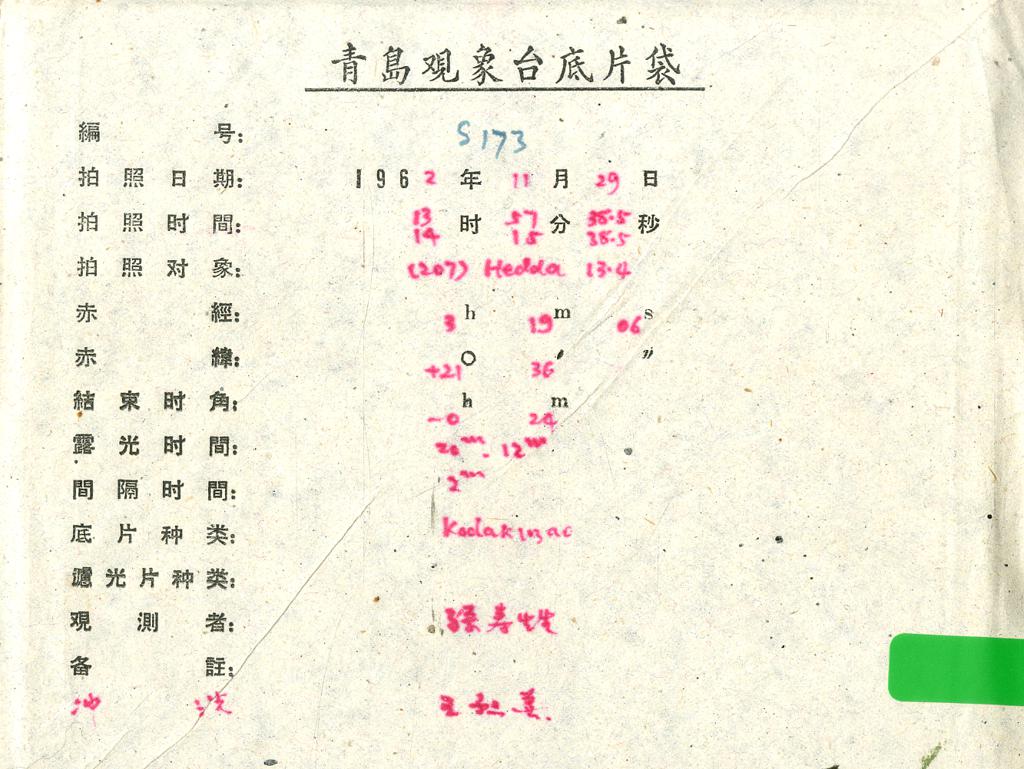 青島观象台底片袋
編号: S173
拍照日期: 1962年11月29日
拍照时間: 13时57分38.5秒
14 15 38.5
拍照对象: (207) Hedda 13.4
赤經: 3h 19m 06s
赤緯: +21° 36′ ″
結束时角: -0h 24m
露光时間: 20m. 12m
間隔时間: 2m
底片种类: Kodak
濾光片种类:
观測者: 孫寿
备註:
冲洗 王